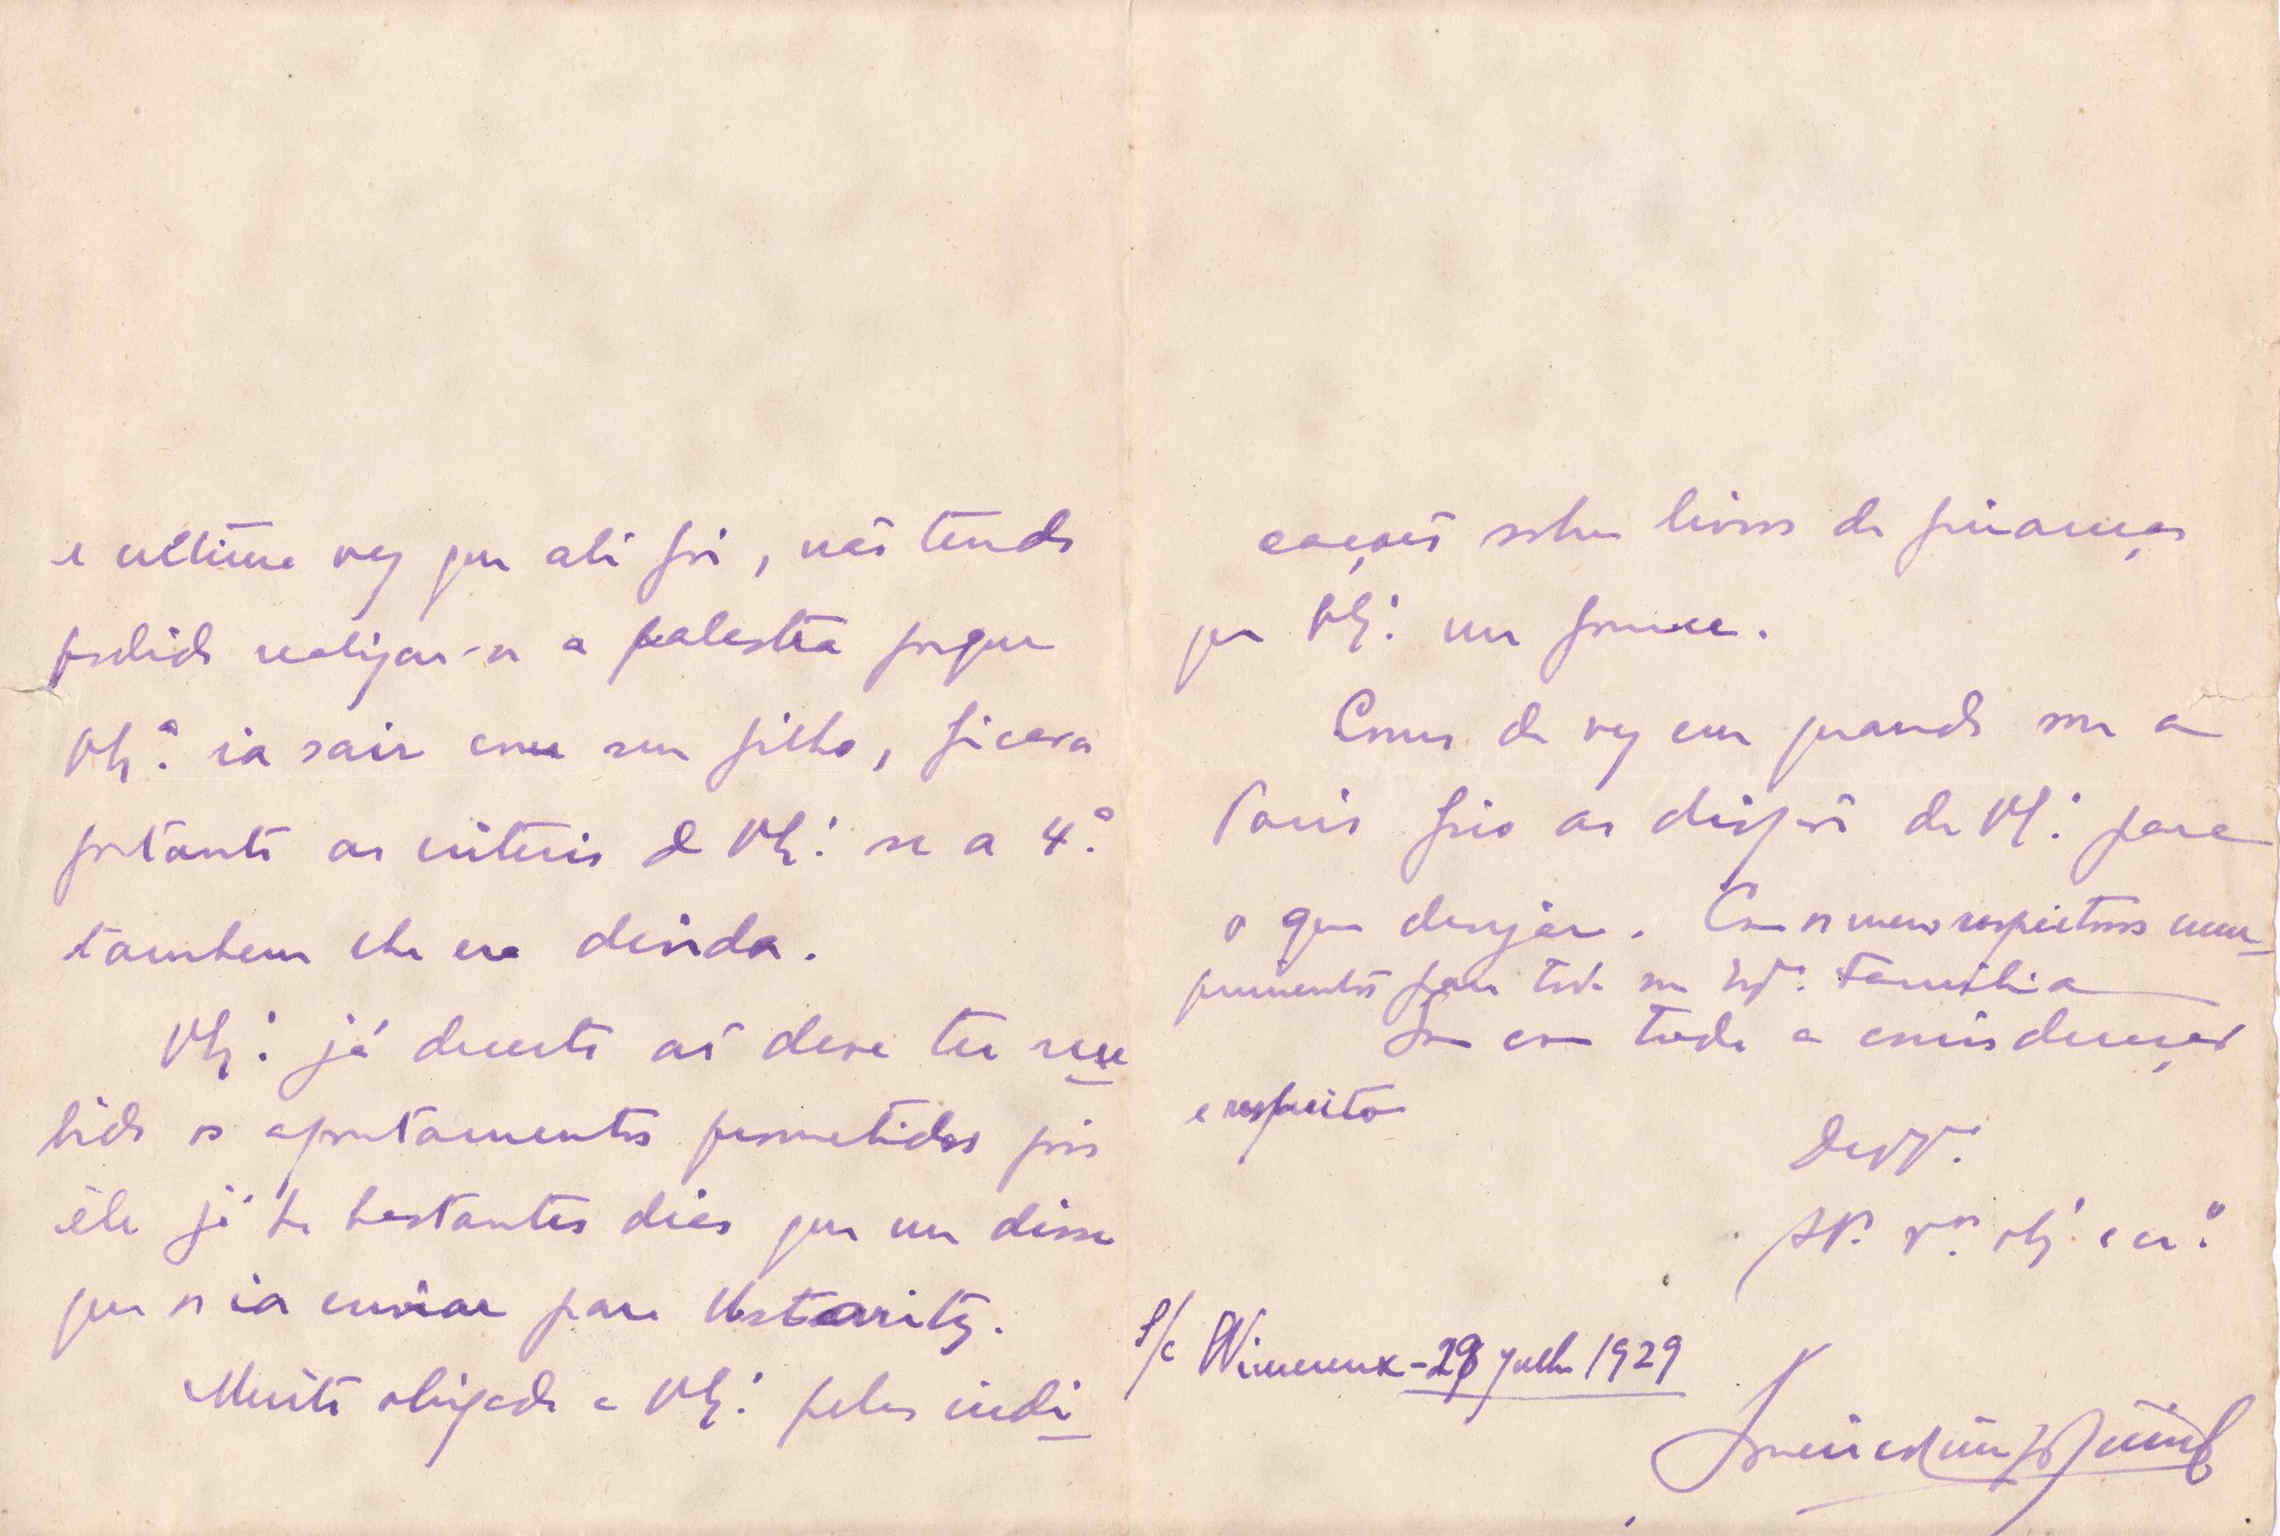 a ultima vez que ali foi, não tendo
podido realizar-se a palestra porque
V. Ex.ª ia sair com seu filho, ficara
portanto ao criterio de V. Ex.ª se a 4.ª
tambem lhe era devida.
V. Ex.ª já decerto as deve ter rece
bido os apontamentos prometidos pois
êle já ha bastantes dias que me disse
que os ia enviar para Ustaritz.
Muito obrigado a V. Ex.ª pelas indi
cações sobre livros de finanças
que V. Ex.ª me fornece.
Como de vez em quando vou a
Paris fico ao dispôr de V. Ex.ª para
o que desejar. Com os meus respeitosos cum
primentos para toda sua Ex.ma Familia
Sou com toda a consideração
e respeito
De V. Ex.ª
S/c Wimereux - 28 Julho 1929